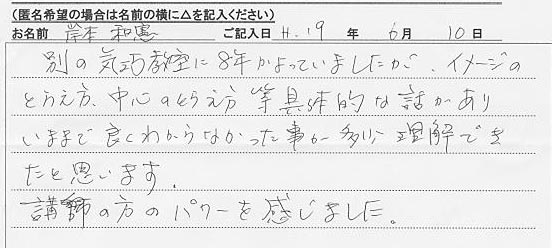 (匿名希望の場合は名前の横に△を記入ください)
お名前 岸本 和憲 ご記入日 H.19 年 6月 10日
別の気功教室に8年かよっていましたが、イメージの
とらえ方、中心のとらえ方 等具体的な話があり
いままで良くわからなかった事が多少理解でき
たと思います。
講師の方のパワーを感じました。